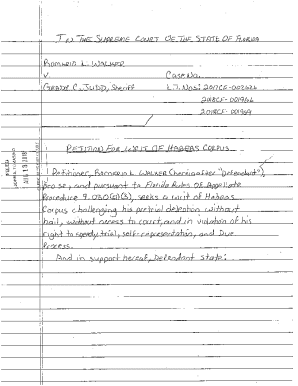 IN THE SUPREME COURT OF THE STATE OF FLORIDA
ROMARIO L. WALKER
V. Case No.
GRADY C. JUDD, Sheriff L.T. Nos: 2017CF-
2018CF-
2018CF-
PETITION FOR WRIT OF HABEAS CORPUS
Petitioner, ROMARIO L. WALKER (hereinafter "Defendant"),
Pro se, and pursuant to Florida Rules of Appellate
Procedure 9.030(a)(3), seeks a writ of Habeas
Corpus challenging his pretrial detention without
bail, without access to court, and in violation of his
right to speedy trial, self-representation, and Due
Process.
And in support hereof, Defendant state: